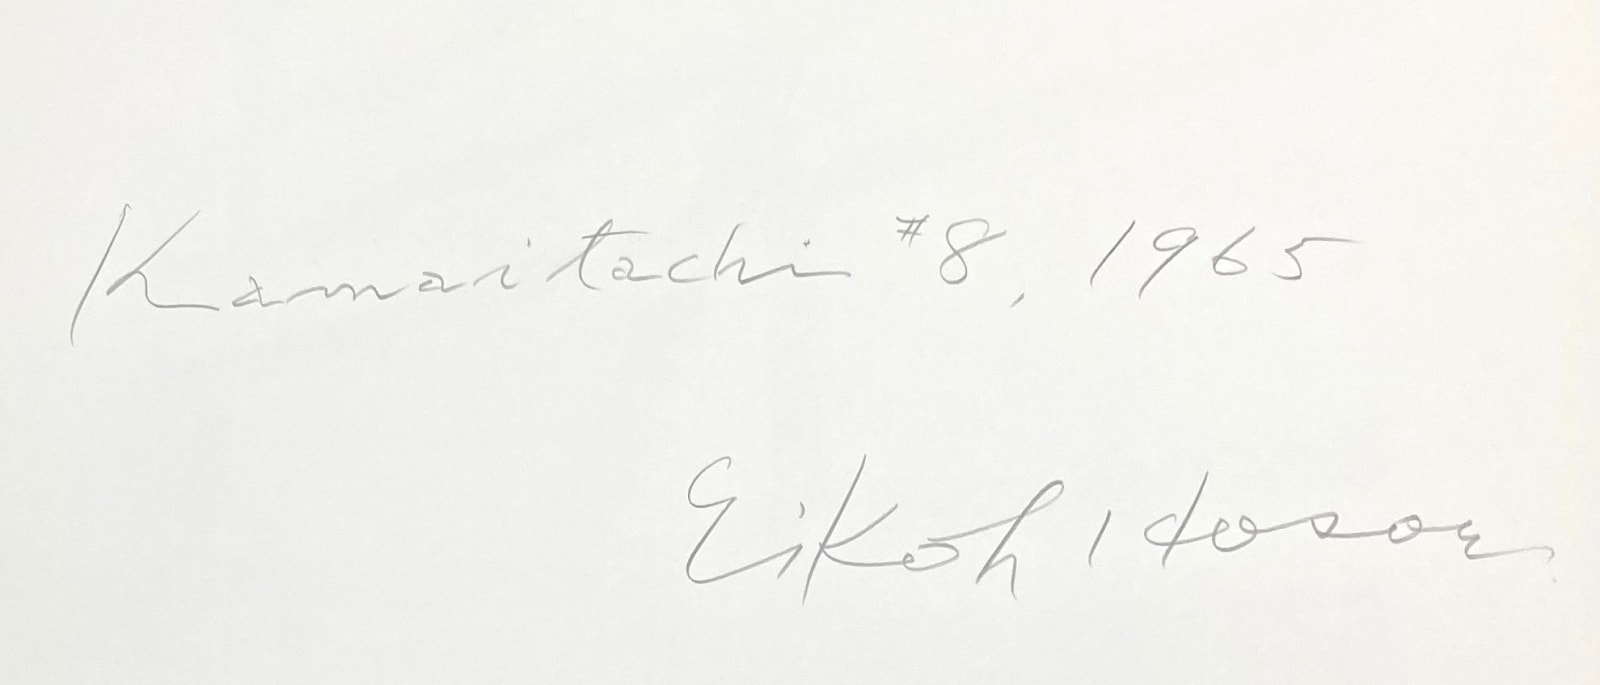 Kamaitachi #8, 1965
Eikoh Hosoe